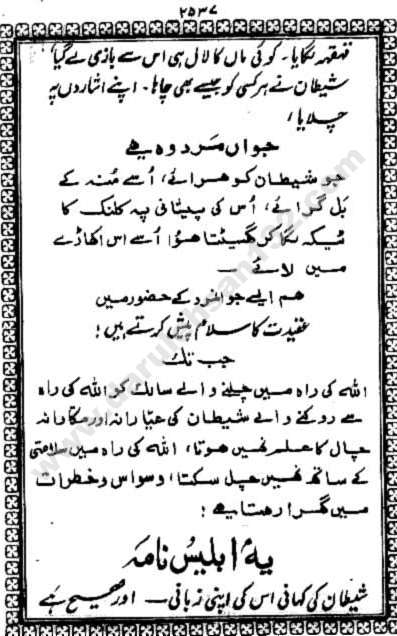 ۲۵۳۷
قہقہہ لگایا۔ کوئی ماں کا لال ہی اس سے بازی لے گیا
شیطان نے ہر کسی کو جیسے بھی چاہا۔ اپنے اشاروں پہ
چلایا،
جواں مرد وہ ہے
جو شیطان کو ہرائے، اُسے مُنہ کے
بَل گرائے، اُس کی پیشانی پہ کلنک کا
ٹیکہ لگا کر گھسیٹتا ہؤا اُسے اس اکھاڑے
میں لائے —
ہم ایسے جوانمرد کے حضور میں
عقیدت کا سلام پیش کرتے ہیں!
جب تک
اللہ کی راہ میں چلنے والے سالک کو اللہ کی راہ
سے روکنے والے شیطان کی عیّارانہ اور مکّارانہ
چال کا علم نہیں ہوتا، اللہ کی راہ میں سلامتی
کے ساتھ نہیں چل سکتا، وسواس و خطرات
میں گھرا رہتا ہے!
یہ ابلیس نامہ
شیطان کی کہانی اس کی اپنی زبانی — اور صحیح ہے